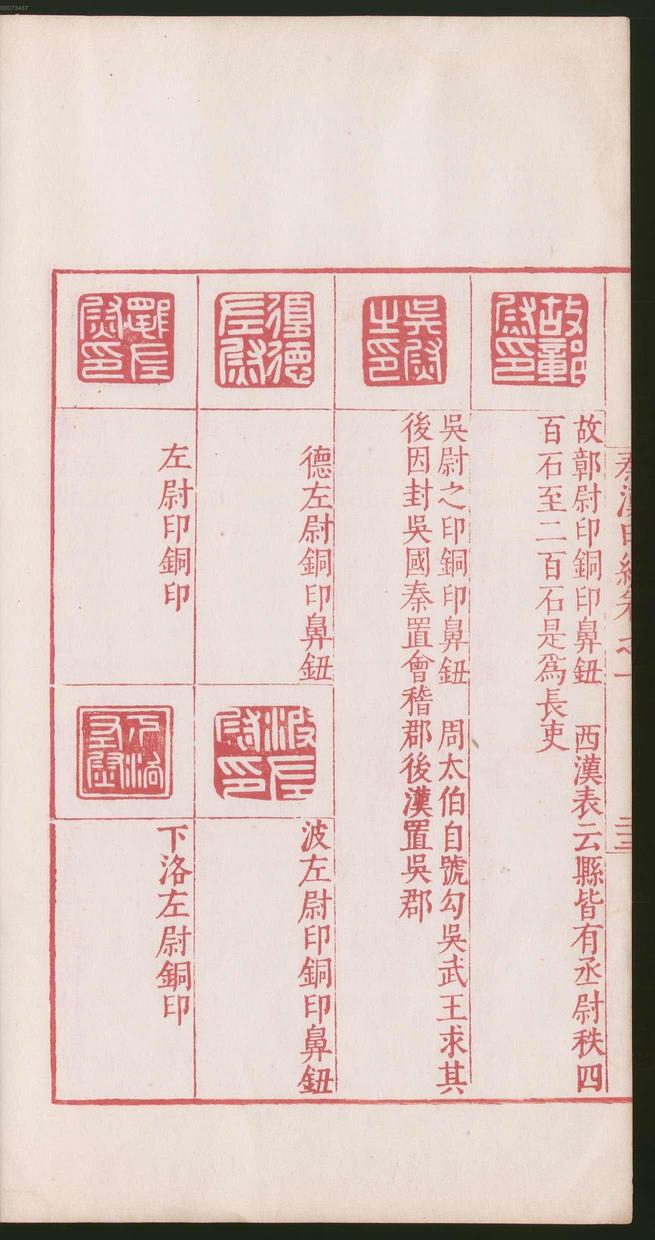 00073467
秦漢印統卷之一
故鄣尉印
故鄣尉印銅印鼻鈕　西漢表云縣皆有丞尉秩四
百石至二百石是為長吏
吳尉之印
吳尉之印銅印鼻鈕　周太伯自號勾吳武王求其
後因封吳國秦置會稽郡後漢置吳郡
德左尉
德左尉銅印鼻鈕
波左尉印
波左尉印銅印鼻鈕
左尉印
左尉印銅印
下洛左尉
下洛左尉銅印